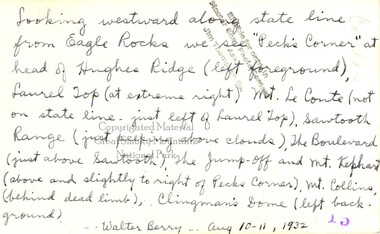 Looking westward along state line
from Eagle Rocks we see "Peck's Corner" at
head of Hughes Ridge (left foreground),
Laurel Top (at extreme right) Mt. Le Conte (not
on state line - just left of Laurel Top), Sawtooth
Range (just peeping above clouds), The Boulevard
(just above Sawtooth), The Jump-off and Mt. Kephart
(above and slightly to right of Pecks Corner), Mt. Collins,
(behind dead limb), Clingman's Dome (left back-
ground)
-- Walter Berry -- Aug 10-11, 1932
Copyrighted Material
National Park